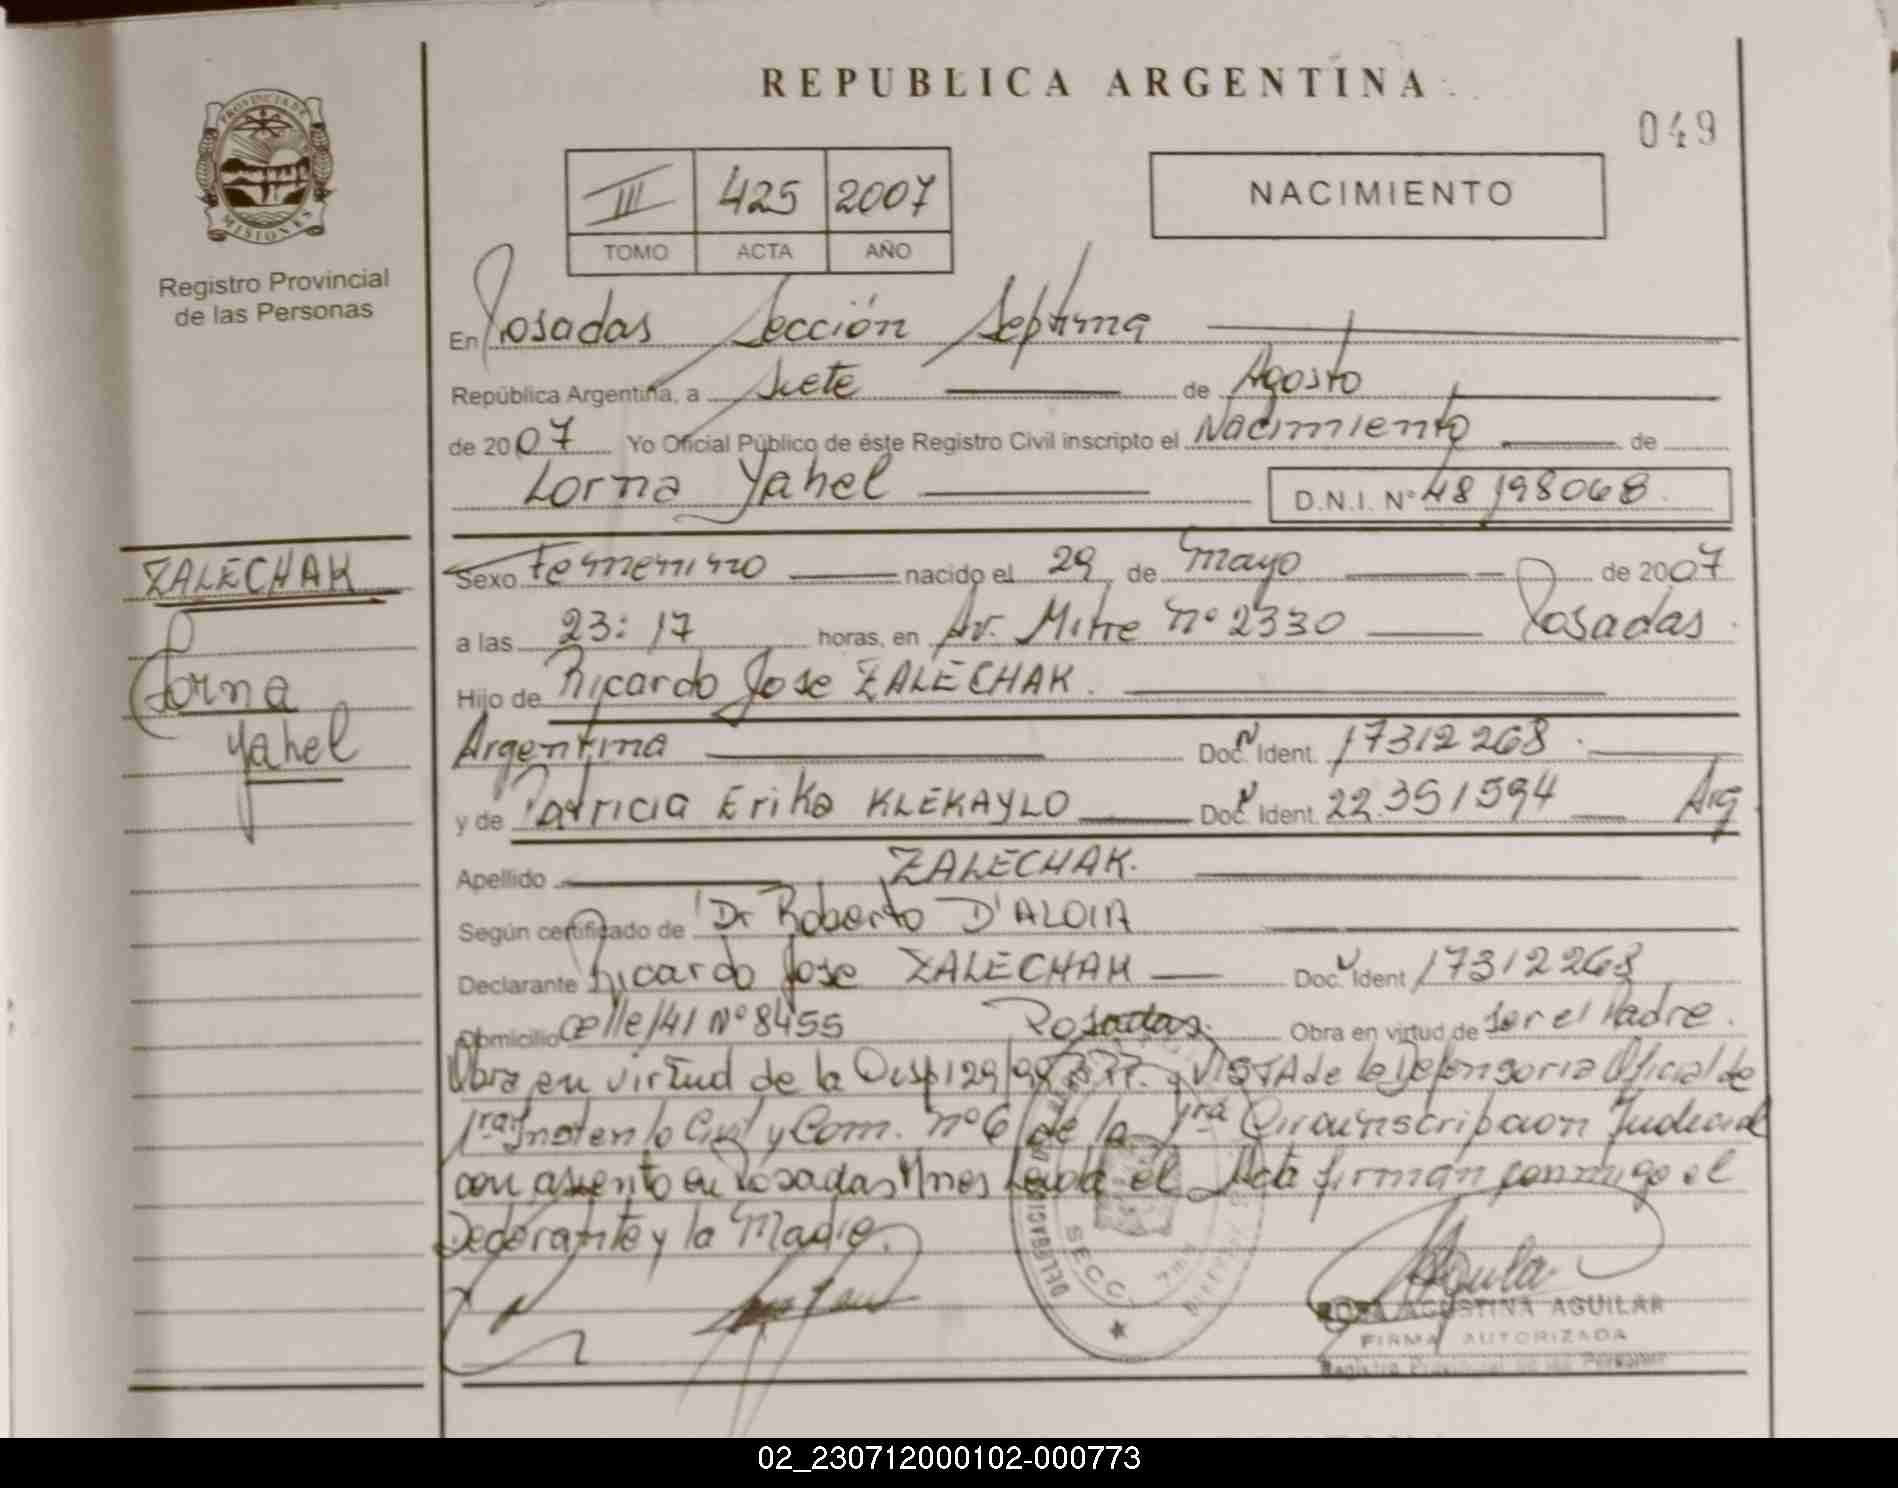 REPUBLICA ARGENTINA
049
PROVINCIA DE
MISIONES
Registro Provincial
de las Personas
III 425 2007
TOMO ACTA AÑO
NACIMIENTO
En Posadas Sección Septima
República Argentina, a Siete de Agosto
de 2007 Yo Oficial Público de éste Registro Civil inscripto el Nacimiento de
Lorna Yahel D.N.I. Nº 48198068
ZALECHAK
Lorna
Yahel
Sexo femenino nacido el 29 de mayo de 2007
a las 23:17 horas, en Av. Mitre nº 2330 Posadas
Hijo de Ricardo Jose ZALECHAK.
Argentina Doc. Ident. 17312268
y de Patricia Erika KLEKAYLO Doc. Ident. 22.351594 Arg
Apellido ZALECHAK.
Según certificado de Dr Roberto D'ALOIA
Declarante Ricardo Jose ZALECHAK Doc. Ident 17312268
Domicilio calle 141 Nº 8455 Posadas. Obra en virtud de ser el Padre.
Obra en virtud de la Disp 129/98 y VISTA de la Defensoria Oficial de
1ra Inst en lo Civil y Com. nº 6 de la 1ra Circunscripcion Judicial
con asiento en Posadas Mnes Leida el Acta firman conmigo el
Declarante y la Madre.
SECC
ROSA AGUSTINA AGUILAR
FIRMA AUTORIZADA
Registro Provincial de las Personas
02_230712000102-000773